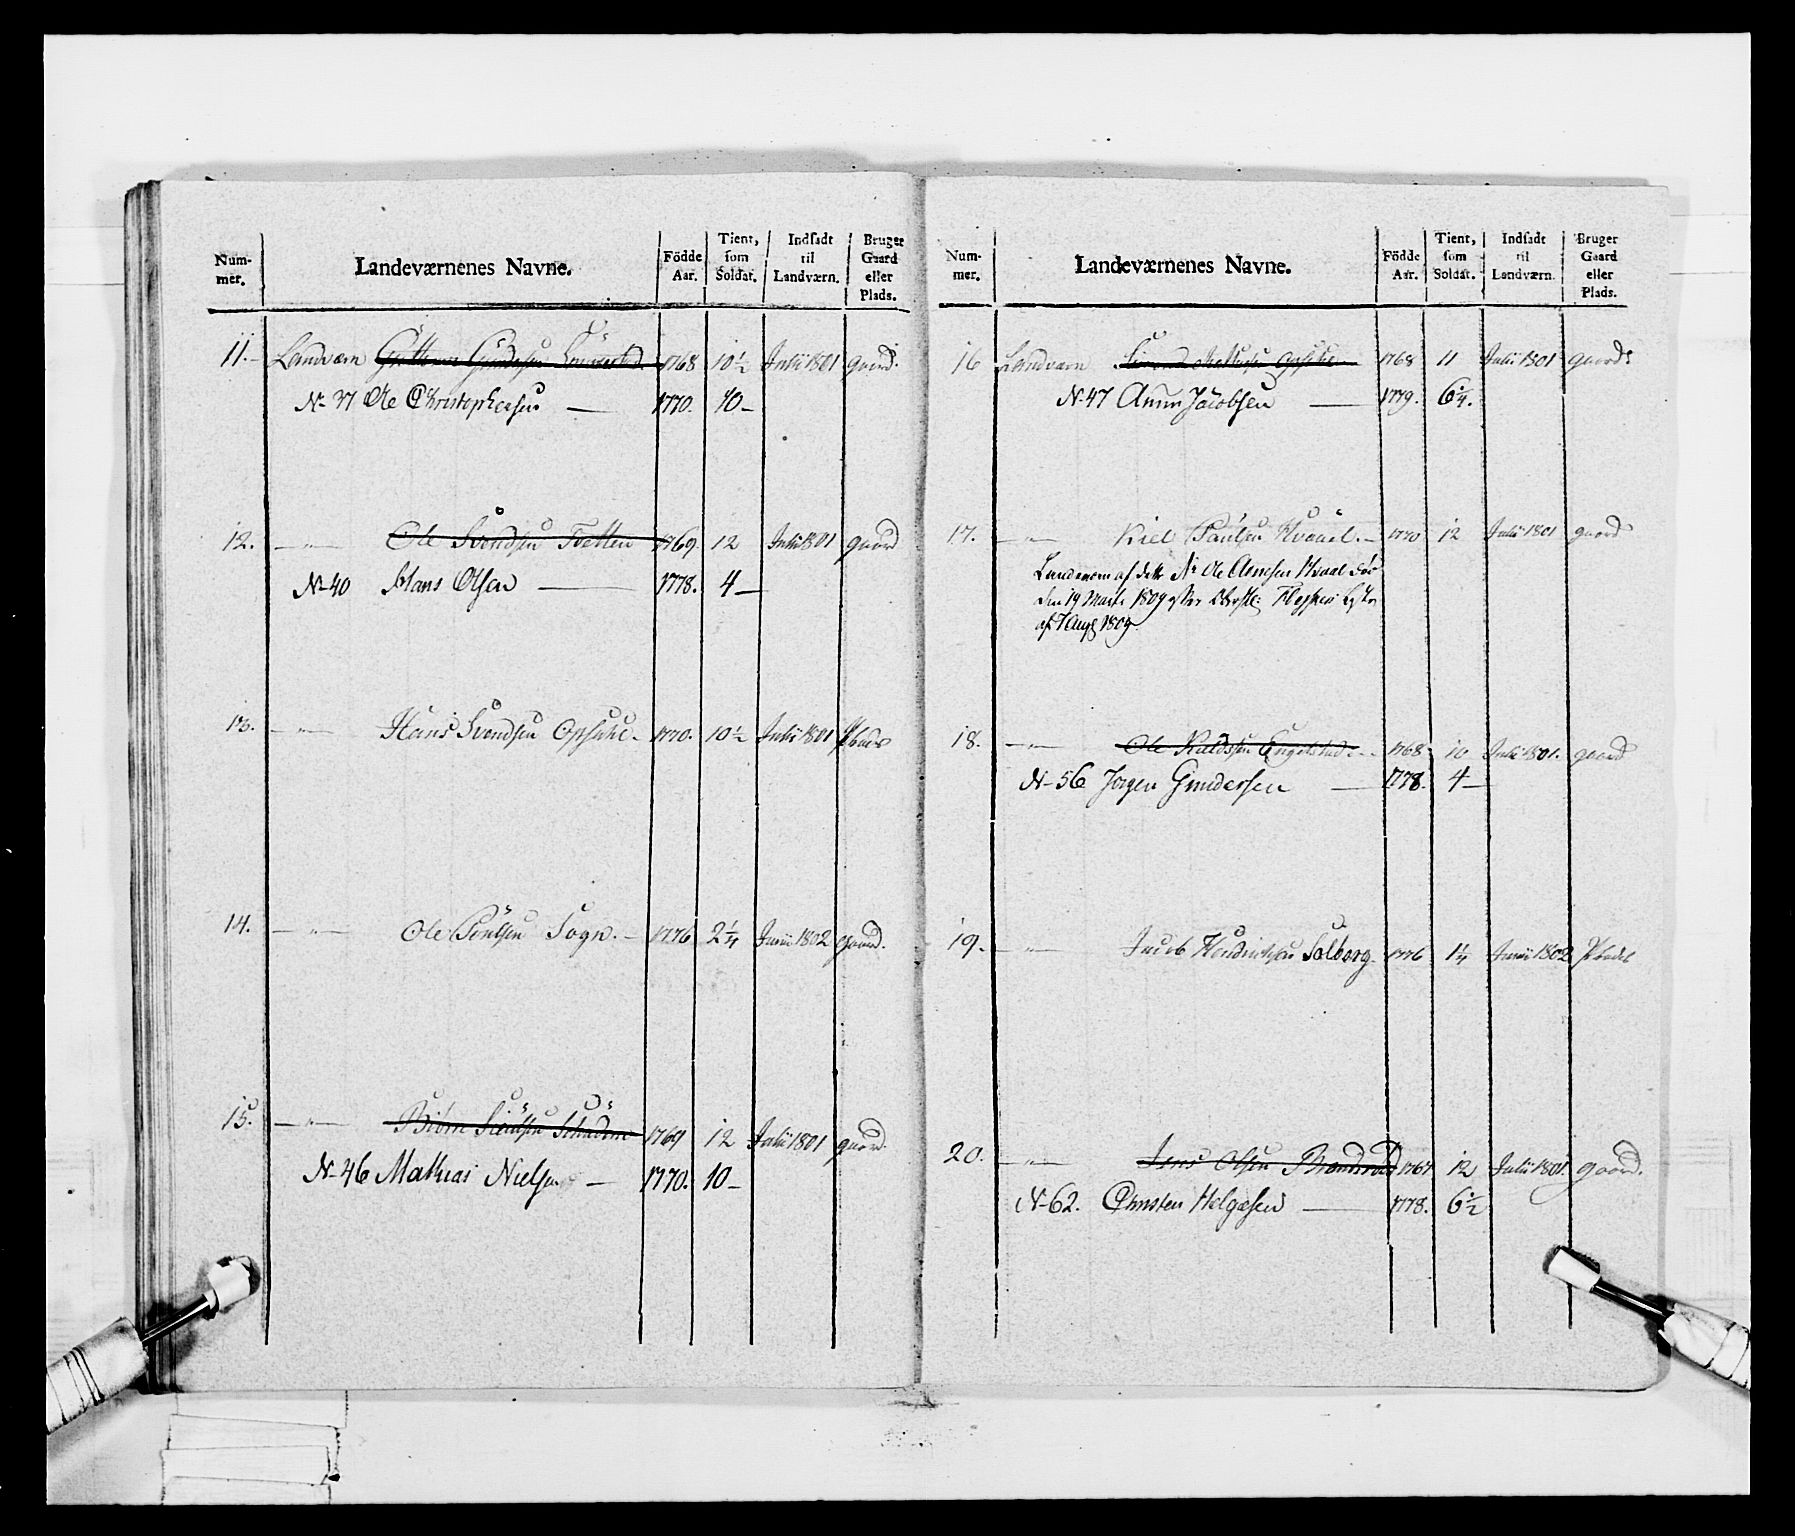 Num-mer. Landeværnenes Navne. Födde Aar. Tient, som Soldat. Indsadt til Landværn. Bruger Gaard eller Plads.
11. Landværn 1768 10½ Julii 1801 gaard.
Ole Christophersen — 1770. 10 —
12. — " — Ole Svendsen Tvetten 1769. 12 Julii 1801 gaard
No 40 Hans Olsen — 1778. 4 —
13. — " — Hans Svendsen Opsahl. 1770. 10½ Julii 1801 Plads
14. — " — Ole Poulsen Sogn. — 1776 2¼ Junii 1802 gaard.
15. — " — Biörn 1769 12 Julii 1801 gaard.
No 46 Mathias Nielsen — 1770. 10 —
Num-mer. Landeværnenes Navne. Födde Aar. Tient, som Soldat. Indsadt til Landværn. Bruger Gaard eller Plads.
16 Landværn 1768 11 Julii 1801 gaard
No 47 Jacobsen — 1779. 6¼.
17. — " — Kiel Paulsen — 1770 12 Julii 1801 gaard
af dette No Ole
den 19 Marts 1809
af Aug 1809.
18. — " — Ole Engelstad 1768 10 Julii 1801. gaard
No 56 Jörgen Gundersen — 1778. 4 —
19. — " — Jacob Hendrichsen Solberg. 1776 1¼ Junii 1802 Plads
20. — " — Jens Olsen 1767 12 Julii 1801 gaard.
No 62. Christen Helgesen — 1778. 6½